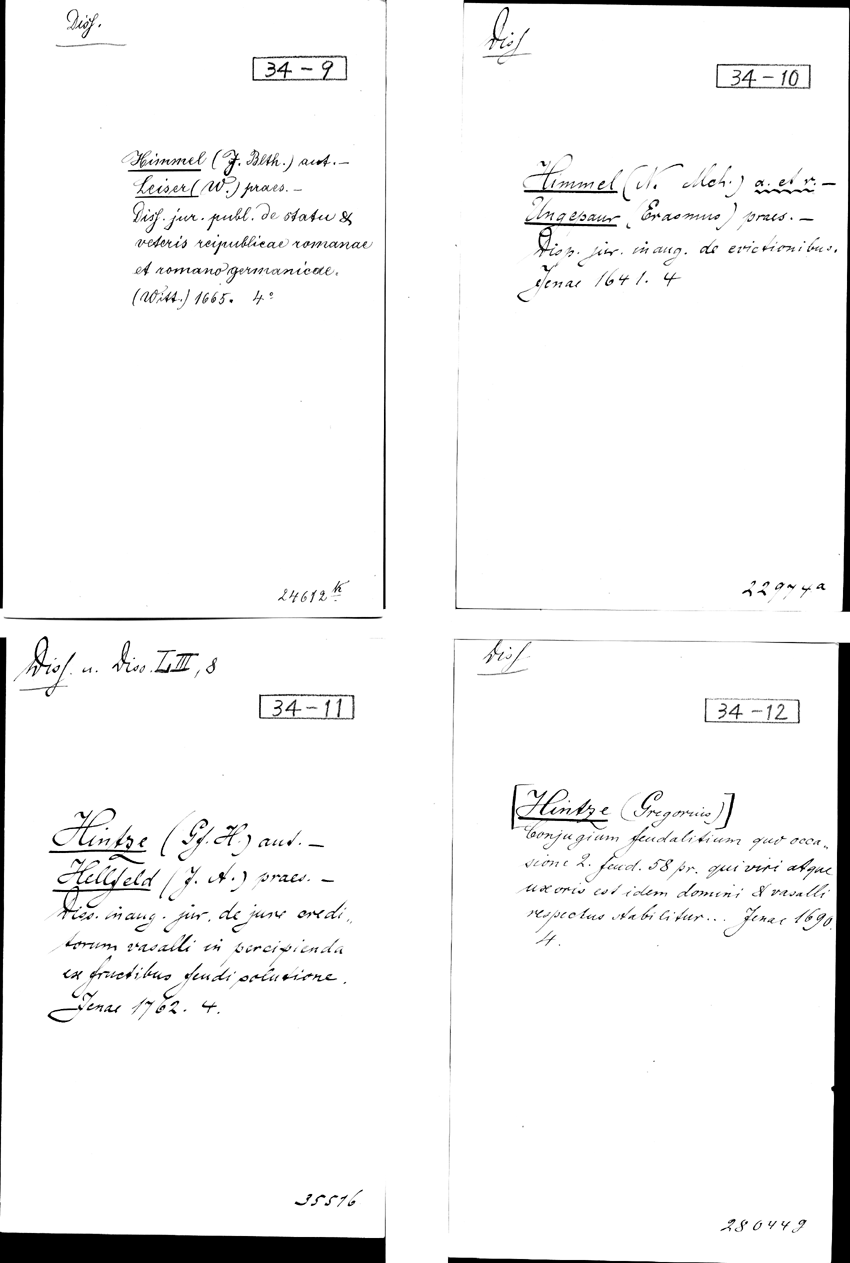 Diss.
34-9
Himmel (J. Blth.) aut. —
Leiser (W.) praes. —
Diss. jur. publ. de statu &
veteris reipublicae romanae
et romano germanicae.
(Witt.) 1665. 4°
24612 k
Diss
34-10
Himmel (N. Mch.) a. et r. —
Ungepaur (Erasmus) praes. —
Disp. jur. inaug. de evictionibus.
Jenae 1641. 4
22974a
Diss. u. Diss. LIII, 8
34-11
Hintze (Gf. H.) aut. —
Hellfeld (J. A.) praes. —
Diss. inaug. jur. de jure credi„
torum vasalli in percipienda
ex fructibus feudi solutione.
Jenae 1762. 4.
35516
Diss.
34-12
[Hintze (Gregorius)]
Conjugium feudalitium quo occa„
sione 2. feud. 58 pr. qui viri atque
uxoris est idem domini & vasalli
respectus stabilitur... Jenae 1690.
4.
280449